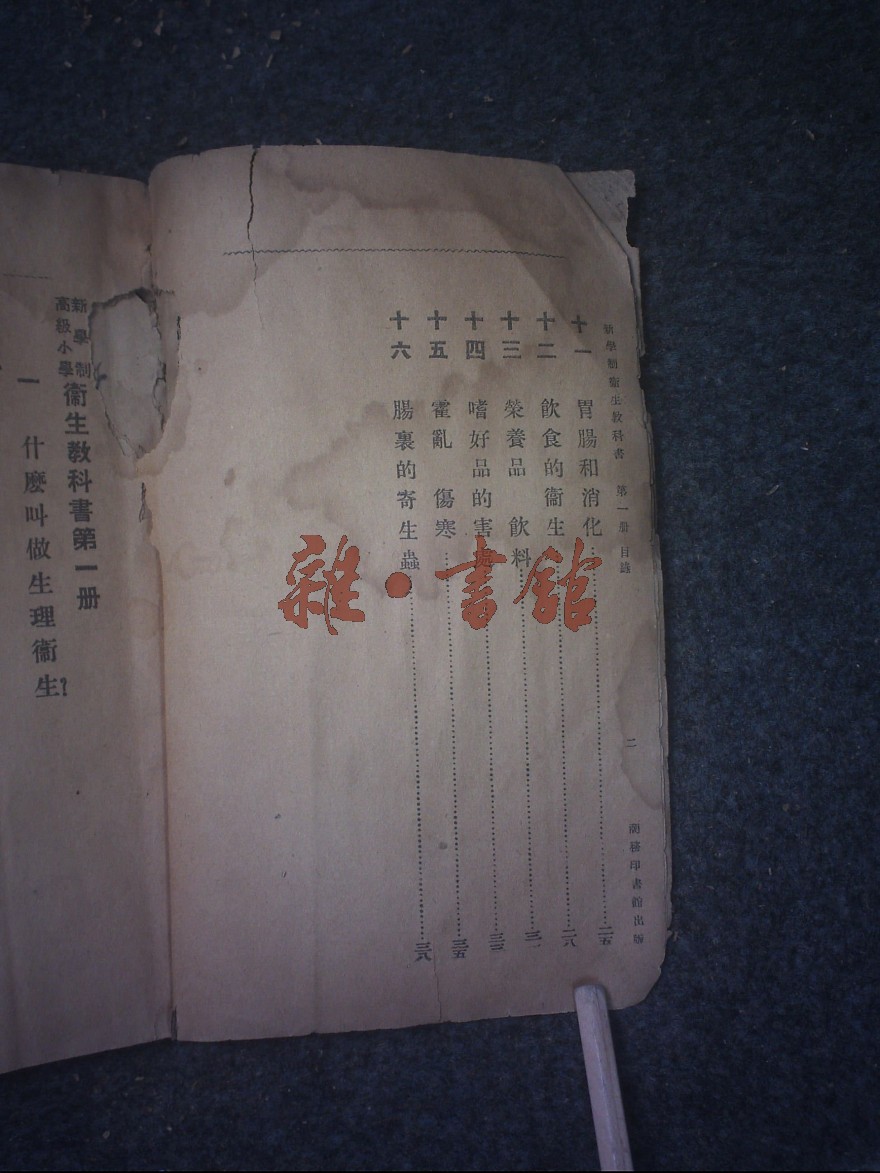 新學制衞生教科書 第一册 目錄 二 商務印書館出版
十一 胃腸和消化 二五
十二 飲食的衞生 二八
十三 榮養品 飲料
十四 嗜好品的害處 三三
十五 霍亂 傷寒 三五
十六 腸裏的寄生蟲 三八
雜·書館
新學制
高級小學
衞生教科書第一册
一 什麽叫做生理衞生?